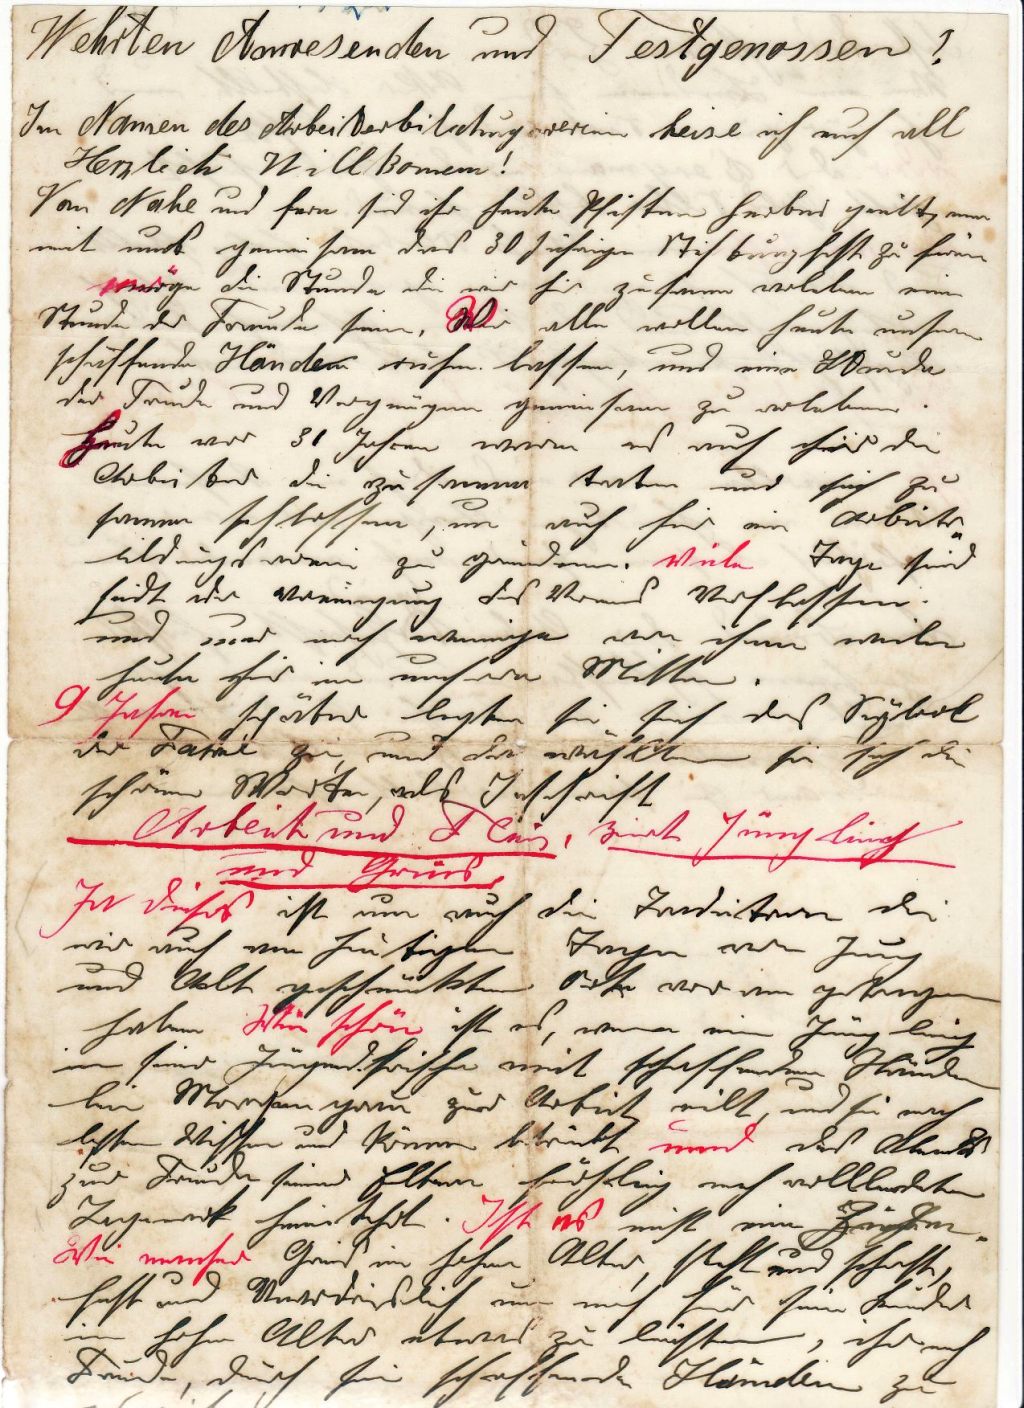 Wehrten Anwesenden und Festgenossen!
Im Namen des Arbeiterbildungsverein heise ich euch all
Herzlich Willkomen!
Von Nahe und fern sid ihr heute herbei geeilt, um
mit uns gemeinsam das 30 jährige Stiftungsfest zu feiern
möge die Stunde die wir hir zusamen erleben eine
Stunde der Freude sein. Wir alle wollen heute unsere
schaffende Händen ruhen lassen, und eine Stunde
der Freude und Vergnügen gemeinsam zu erleben.
Heute vor 31 Jahren waren es auch hir die
Arbeiter die zusamen traten und sich zu
samen schlossen, um auch hir ein Arbeiter
bildungsverein zu gründen. Viele Tage sind
seidt der Vereinigung des Vereins Verflossen.
und nur noch wenige von ihnen weilen
heute hir in unsere Mitten.
9 Jahre später legten sie sich das Sÿbol
der Fahne zu, und da wählten sie sich die
schöne Worte, als Inschrift
Arbeit und Fleis, ziert Jüngling
und Greis.
Ja dieses ist nun auch die Tradition die
wir auch am heutigen Tage von Jung
und Alt geschmückten Orte vor an getragen
haben Wie schön ist es, wenn ein Jüngling
in seiner Jugendfrische mit schaffenden Händen
bei Morgengrau zur Arbeit eilt, und sie nach
besten Wissen und Können betreibt und des Abends
zur Freude seiner Eltern fröhlich nach volllendeten
Tagewerk heimkehrt. Ist es nicht eine
Wie mancher Greis im hohen Alter, steht und schafft,
fest und Unverdrislich um noch für seine Kinder
im hohen Alter etwas zu leisten, ihr auch
Freude, durch sein schaffende Händen zu